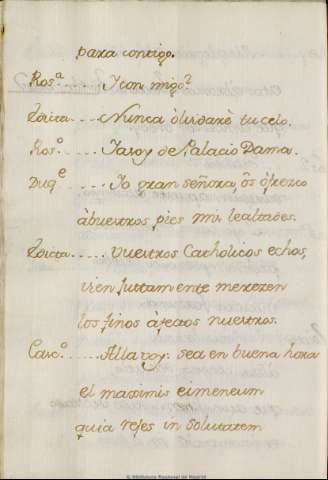 para contigo.
Ros.ª ..... I con migo?
Edicta ..... Nunca òlvidarè tu celo.
Ros.º .... Ia soy de Palacio Dama.
Duq.e .... Io gran señora, ôs ofrezco
àbuestros pies mis lealtades.
Edicta ..... vuestros Catholicos echos,
vien juttamente merezen
los finos àfectos nuestros.
Carc.º ..... Alla voy: sea en buena hora
el maximis eimeneum
quia reses in solutatem
© Biblioteca Nacional de España